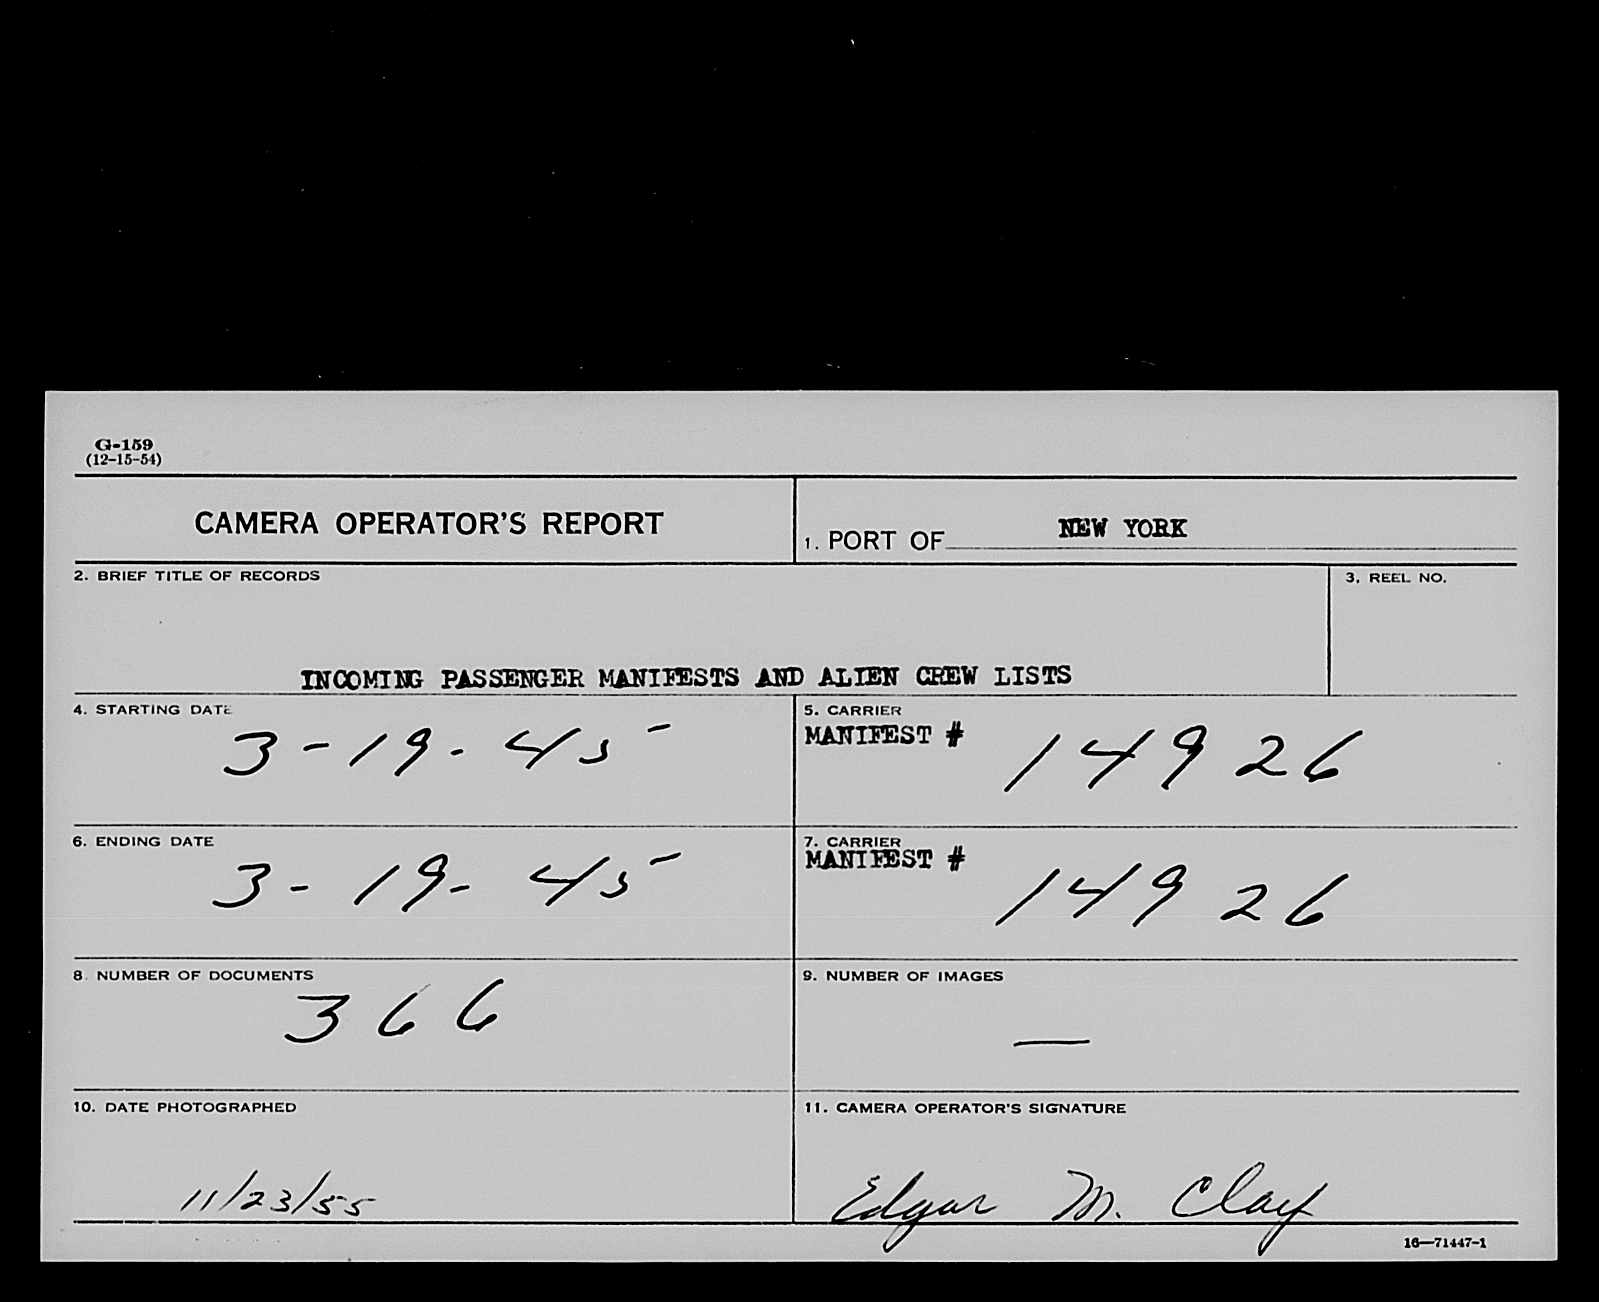 G-159
(12-15-54)
CAMERA OPERATOR'S REPORT
1. PORT OF NEW YORK
2. BRIEF TITLE OF RECORDS
INCOMING PASSENGER MANIFESTS AND ALIEN CREW LISTS
3. REEL NO.
4. STARTING DATE
3-19-45
5. CARRIER
MANIFEST # 14926
6. ENDING DATE
3-19-45
7. CARRIER
MANIFEST # 14926
8. NUMBER OF DOCUMENTS
366
9. NUMBER OF IMAGES
—
10. DATE PHOTOGRAPHED
11/23/55
11. CAMERA OPERATOR'S SIGNATURE
Edgar M. Clay
16—71447-1